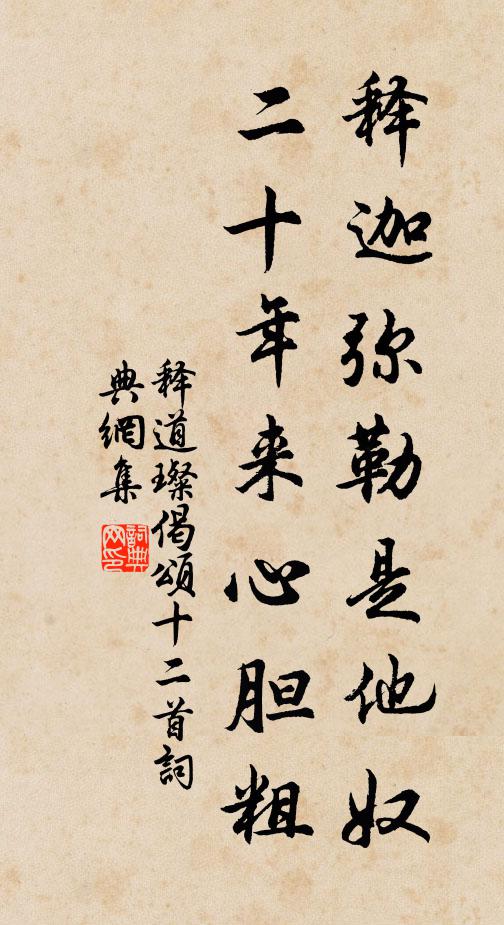 释迦弥勒是他奴
二十年来心胆粗
释道璨偈頌十二首詞
典網集
詞典网印